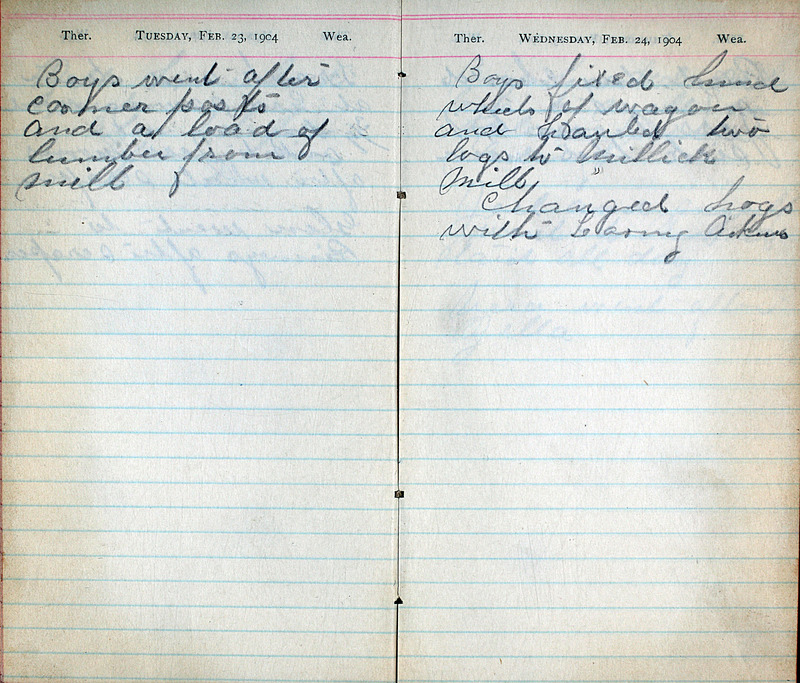 Ther. Tuesday, Feb. 23, 1904 Wea.
Boys went after
corner posts
and a load of
lumber from
mill
Ther. Wednesday, Feb. 24, 1904 Wea.
Boys fixed hind
wheels of wagon
and hauled two
logs to Millick
Mill
Changed hogs
with